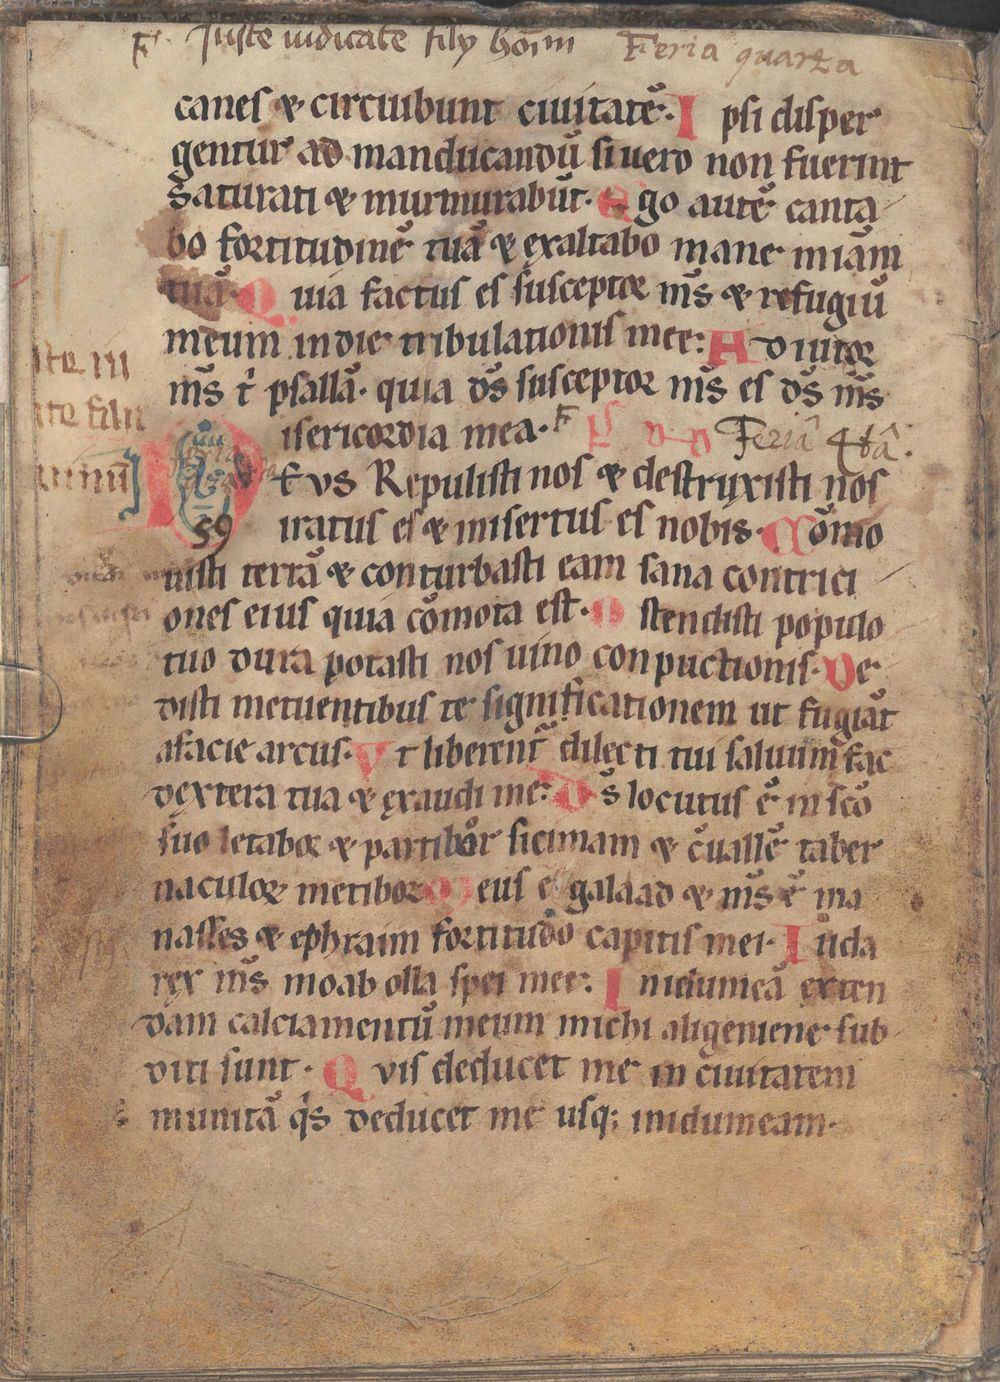 F. Juste iudicate filij hom̄ Feria quarta
canes & circuibunt ciuitatē. I psi disper
gentur ad manducandū si uero non fuerint
saturati & murmurabūt. Ego autē canta
bo fortitudinē tuā & exaltabo mane miām
tuā. Q uia factus es susceptor m̄s & refugiū
meum in die tribulationis mee: A diutor
m̄s t̄ psallā. quia d̄s susceptor m̄s es d̄s m̄s
te filii
isericordia mea. F Feriâ 4tâ.
D Evs Repulisti nos & destruxisti nos
59 iratus es & misertus es nobis. Cōmo
uisti terrā & conturbasti eam sana contrici
ones eius quia cōmota est. O stendisti populo
tuo dura potasti nos uino conpuctionis. De
disti metuentibus te significationem ut fugiāt
afacie arcus. V t liberent̄ dilecti tui saluum fac
dextera tua & exaudi me: D s̄ locutus ē in scō
suo letabor & partibor sicimam & c̄uallē taber
naculor metibor M eus e galaad & m̄s ē ma
nasses & ephraim fortitudo capitis mei. I uda
rex m̄s moab olla spei mee: I nidumeā exten
dam calciamentū meum michi aligeniene sub
diti sunt. Q vis deducet me in ciuitatem
munitā q̄s deducet me usq; inidumeam.